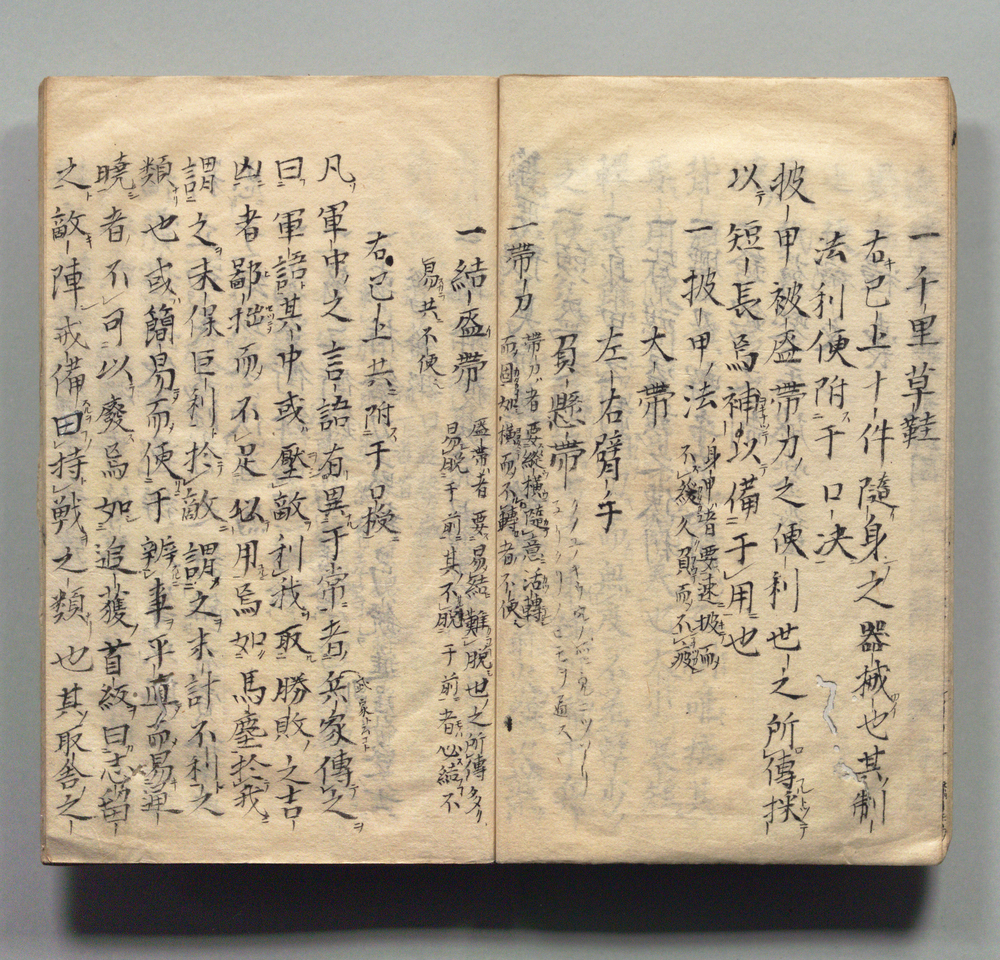 一千里草鞋
右已上十件隨身之器械也其制
法利便附于口决
披甲被盔帶力之便利世之所傳採
以短長爲神以備于用也
一披甲法 身神者要速披而
不綾久負而不疲
大帶
左右臂手
負懸帶
一帶刀 帶刀者要縱橫隨意活轉
而固如橫而不轉者不便
一結盔帶 盔帶者要易結難脱世之所傳
易脱于前其不脱于前者必結不
易共不便
右已上共附于口授
凡軍中之言語有異于常者兵家傳之
曰軍語其中或壓敵利我取勝敗之吉
凶者鄙拙而不足必用焉如馬塵於我
謂之末保巨利於敵謂之末計不利之
類也或簡易而便于辨事平直而易
曉者不可以廢焉如追獲首級曰志留
之敵陣戒備曰持戰之類也其取舍之